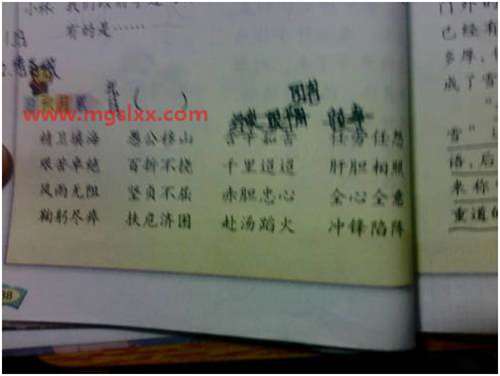 有的是……
www.mgslxx.com
精卫填海 愚公移山 含辛茹苦 任劳任怨
艰苦卓绝 百折不挠 千里迢迢 肝胆相照
风雨无阻 坚贞不屈 赤胆忠心 全心全意
鞠躬尽瘁 扶危济困 赴汤蹈火 冲锋陷阵
门外的
已经有
多厚,
成了雪
雪"
语,后
来称
重道的